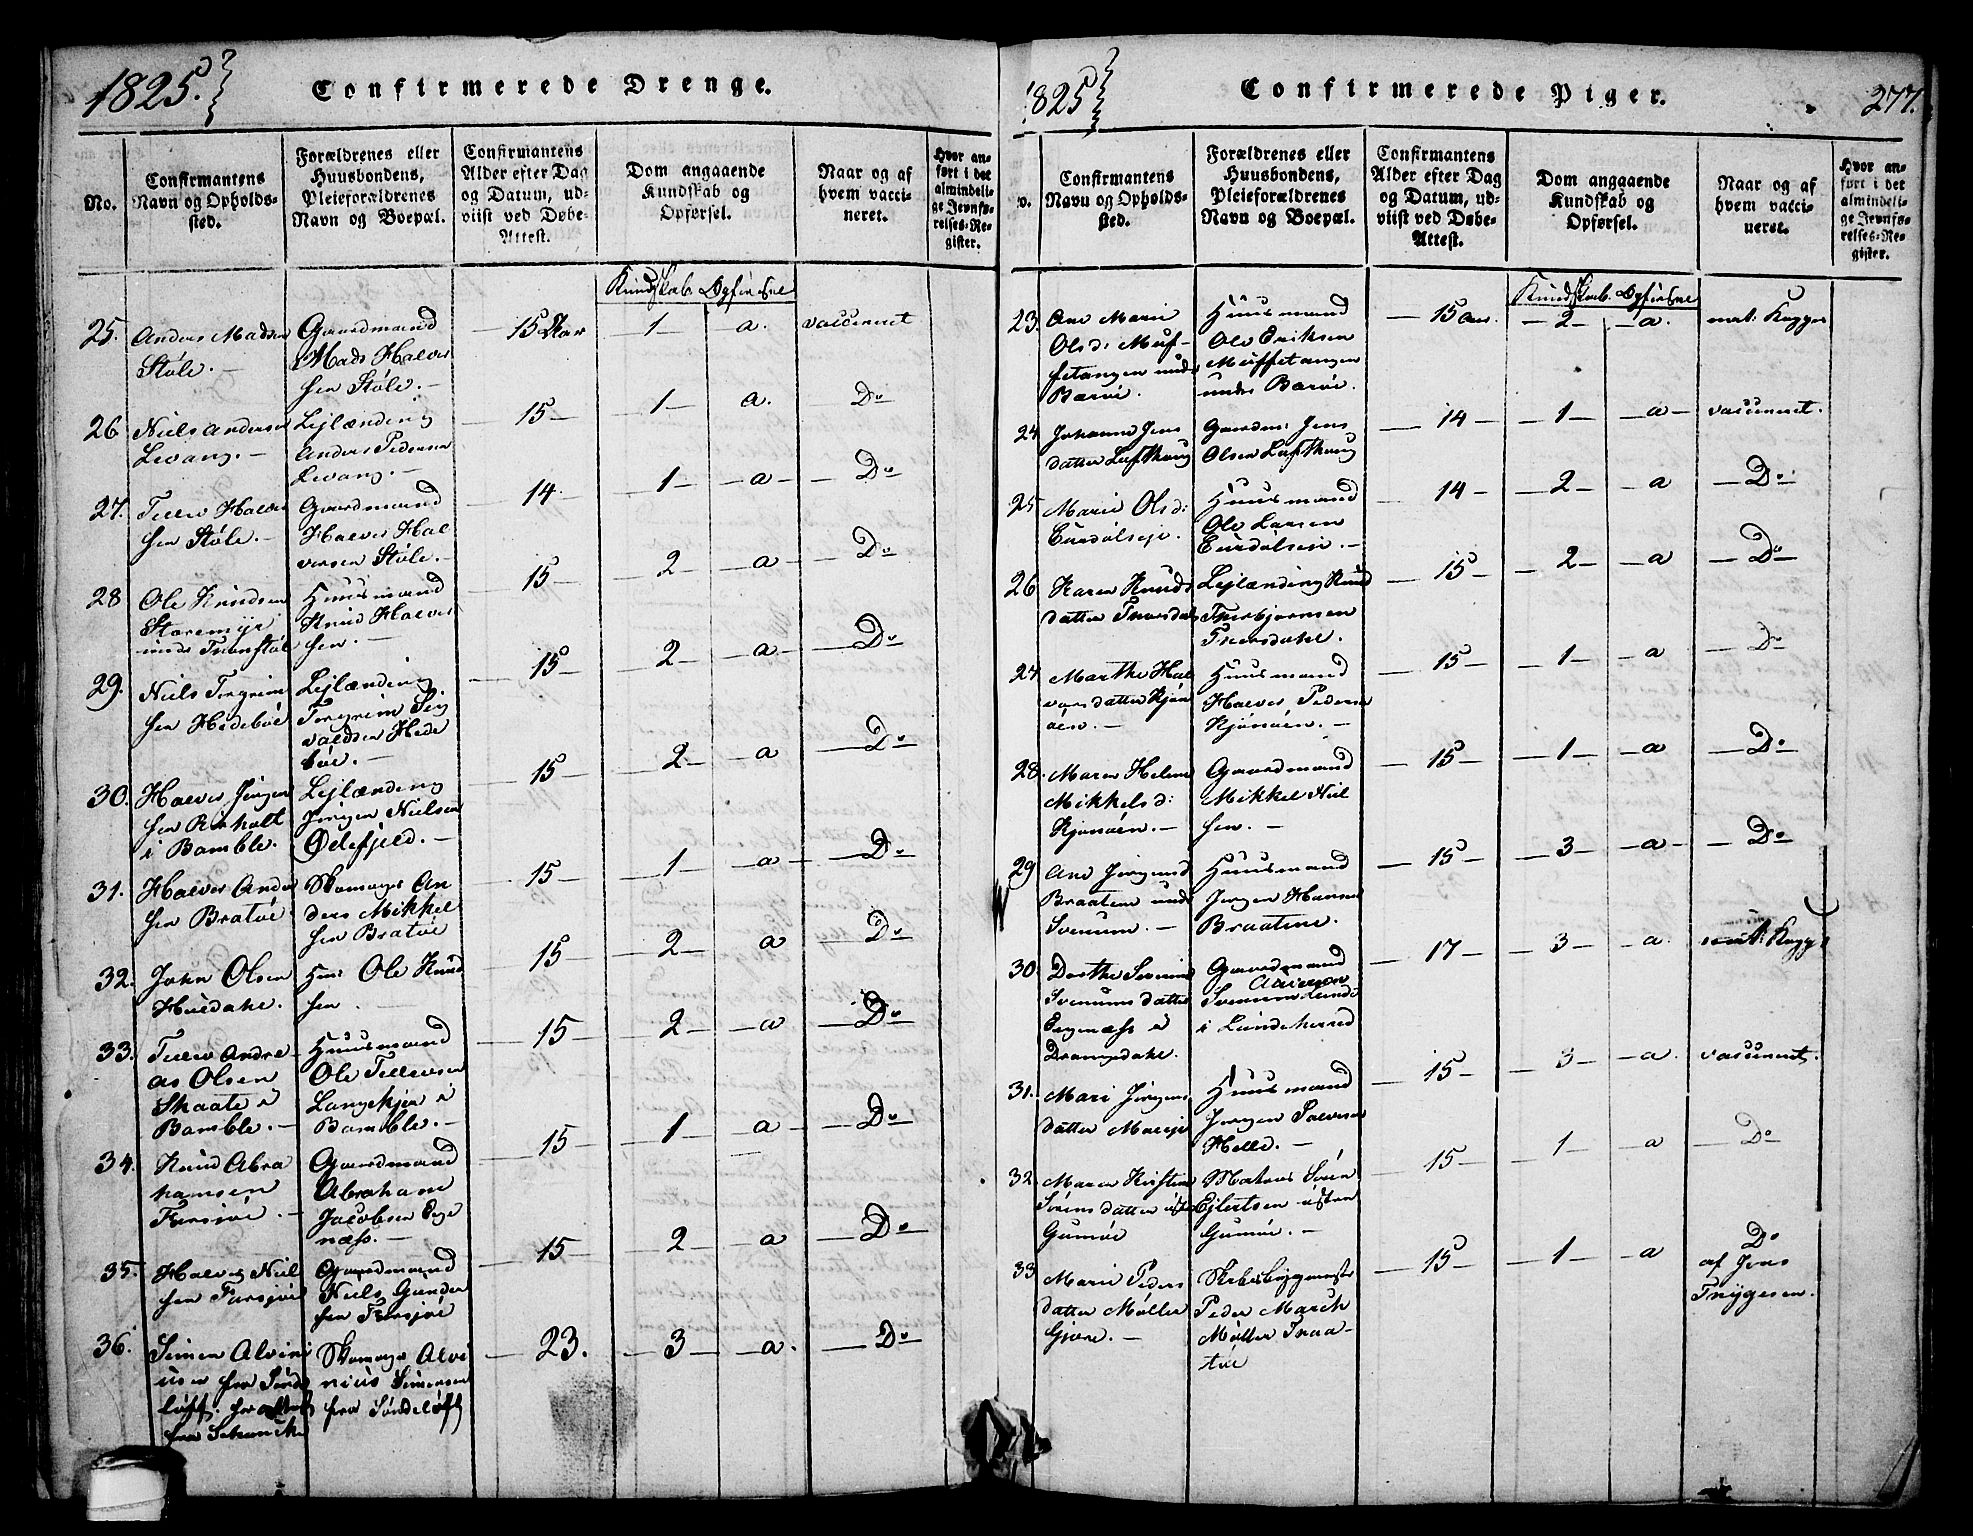 1825.
Confirmerede Drenge.
No.
Confirmantens
Navn og Opholds-
sted.
Forældrenes eller
Huusbondens,
Pleieforældrenes
Navn og Boepæl.
Confirmantens
Alder efter Dag
og Datum, ud-
viist ved Døbe-
Attest.
Dom angaaende
Kundskab og
Opførsel.
Naar og af
hvem vacci-
neret.
Hvor an-
ført i det
almindeli-
ge Jevnfø-
relses-Re-
gister.
Kundskab Opførsel
25. Anders Madsen
Støle. -
Gaardmand
Mads Halvor
sen Støle. -
15 Aar
1 a. vaccineret
26 Niels Anders
Levang. -
Lejlænding
Anders Peders
Levang. -
15 1 a. Do
27. Tellev Halvor
sen Støle. -
Gaardmand
Halvor Hal
vorsen Støle. -
14. 1 a Do
28 Ole Knudsen
Storemyr
under
Huusmand
Knud Halvor
sen. -
15 2 a Do
29. Niels Torgrim
sen Hedeboe
Lejlænding
Torgrim
valdsen Hede
boe. -
15 2 a Do
30. Halvor Jørgen
sen Rørholt
i Bamble.
Lejlænding
Jørgen Nielsen
Ødefjeld. -
15 2 a Do
31. Halvor Ander
sen Bratøe
Skomager An
ders Mikkel
sen Bratøe
15 1 a Do
32. John Olsen
Huusm: Ole Knud
sen
15 2 a Do
33. Tellev Andre
as Olsen
Skaate i
Bamble. -
Huusmand
Ole Tellevsen
Langkjær i
Bamble. -
15 2 a Do
34. Knud Abra
hamsen
Farsjøe. -
Gaardmand
Abraham
Jacobsen Ege
næss. -
15 1 a Do
35. Halvor Niel
sen Farsjøe
Gaardmand
Niels Gunder
sen Farsjøe
15 2 a Do
36. Simen Alvini
usen fra
Skomager Alvi
nius Simensen
fra Søndeløft
23. 3 a. Do
1825
Confirmerede Piger.
277.
Confirmantens
Navn og Opholds-
sted.
Forældrenes eller
Huusbondens,
Pleieforældrenes
Navn og Boepæl.
Confirmantens
Alder efter Dag
og Datum, ud-
viist ved Døbe-
Attest.
Dom angaaende
Kundskab og
Opførsel.
Naar og af
hvem vacci-
neret.
Hvor an-
ført i det
almindeli-
ge Jevnfø-
relses-Re-
gister.
Kundskab Opførsel
23. Ane Marie
Olsd: Muf-
fetangen under
Barøe.
Huusmand
Ole Eriksen
Muffetangen
under Barøe.
15 Aar. 2 a. nat: Kopper
24 Johanne Jens
datter Lofthaug
Gaardm: Jens
Olsen Lofthaug
14 1 a vaccineret.
25 Marie Olsd:
Huusmand
Ole Larsen
14 2 a Do
26 Karen Knuds
datter Thorsdal
Lejlænding Knud
Thorbjørnsen
Thorsdahl.
15 2 a Do
Marthe Hal
vorsdatter Kjøn
øen. -
Huusmand
Halvor Peders
Kjønøen. -
15 1 a Do
28. Maren Helene
Mikkelsd:
Kjønøen. -
Gaardmand
Mikkel Niel
sen. -
15 1 a Do
29 Ane Jørgensd
Braatene under
Svenum. -
Huusmand
Jørgen Hansen
Braatene.
15 3 a Do
30. Dorthe Severine
Svenumsdatter
Egenæss i
Drangedahl.
Gaardmand
i Lundeherred
17 3 a. nat: Kopper
31. Mari Jørgens
datter
Huusmand
Jørgen Halvorsen
Helle. -
15 3 a. vaccineret.
32. Maren Kirstine
Sørensdatter øster
Gumøe
Matros Søren
Ejlertsen østre
Gumøe. -
15 1 a Do
33 Marie Peders
datter Møller
Skibsbygmester
Peder March
Møller Traa-
tøe
15 1 a Do
af Jens
Thygesen.